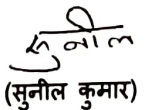 सुनील
(सुनील कुमार)